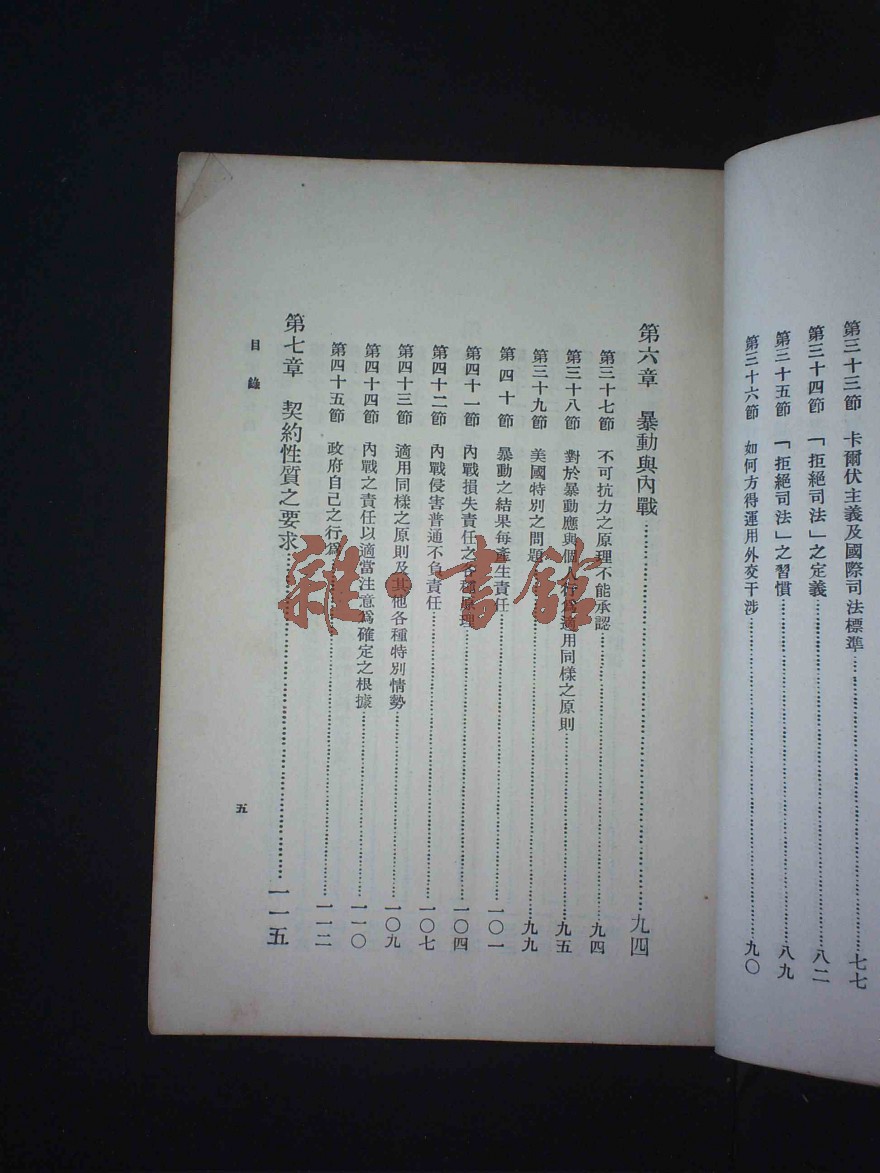 第三十三節 卡爾伏主義及國際司法標準 七七
第三十四節 「拒絕司法」之定義 八二
第三十五節 「拒絕司法」之習慣 八九
第三十六節 如何方得運用外交干涉 九〇
第六章 暴動與內戰 九四
第三十七節 不可抗力之原理不能承認 九四
第三十八節 對於暴動應與個人行為適用同樣之原則 九五
第三十九節 美國特別之問題 九九
第四十節 暴動之結果每產生責任 一〇一
第四十一節 內戰損失責任之各種原理 一〇四
第四十二節 內戰侵害普通不負責任 一〇七
第四十三節 適用同樣之原則及其他各種特別情勢 一〇九
第四十四節 內戰之責任以適當注意爲確定之根據 一一〇
第四十五節 政府自己之行爲 一一二
第七章 契約性質之要求 一一五
目錄
五
雜·書館